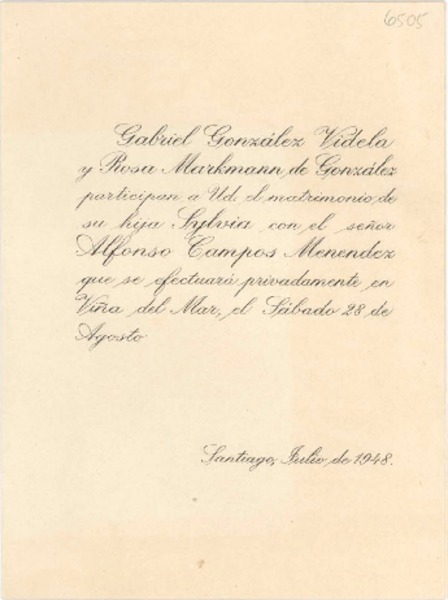 6505
Gabriel González Videla
y Rosa Markmann de González
participan a Ud. el matrimonio de
su hija Sylvia con el señor
Alfonso Campos Menendez
que se efectuará privadamente en
Viña del Mar, el Sábado 28 de
Agosto
Santiago, Julio de 1948.